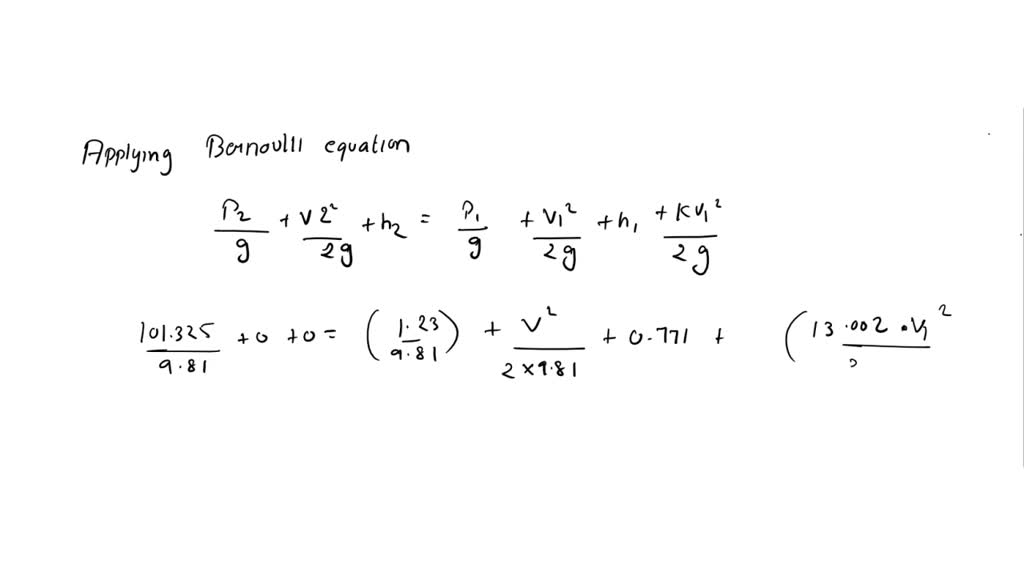 Applying Bernoulli equation
P2/g + V2²/2g + h2 = P1/g + V1²/2g + h1 + KV1²/2g
101.325/9.81 + 0 + 0 = (1.23/9.81) + V²/2×9.81 + 0.771 + (13.002 · V1²/2